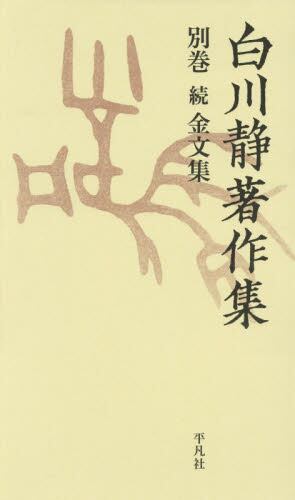 白川静著作集
別巻 続 金文集
平凡社